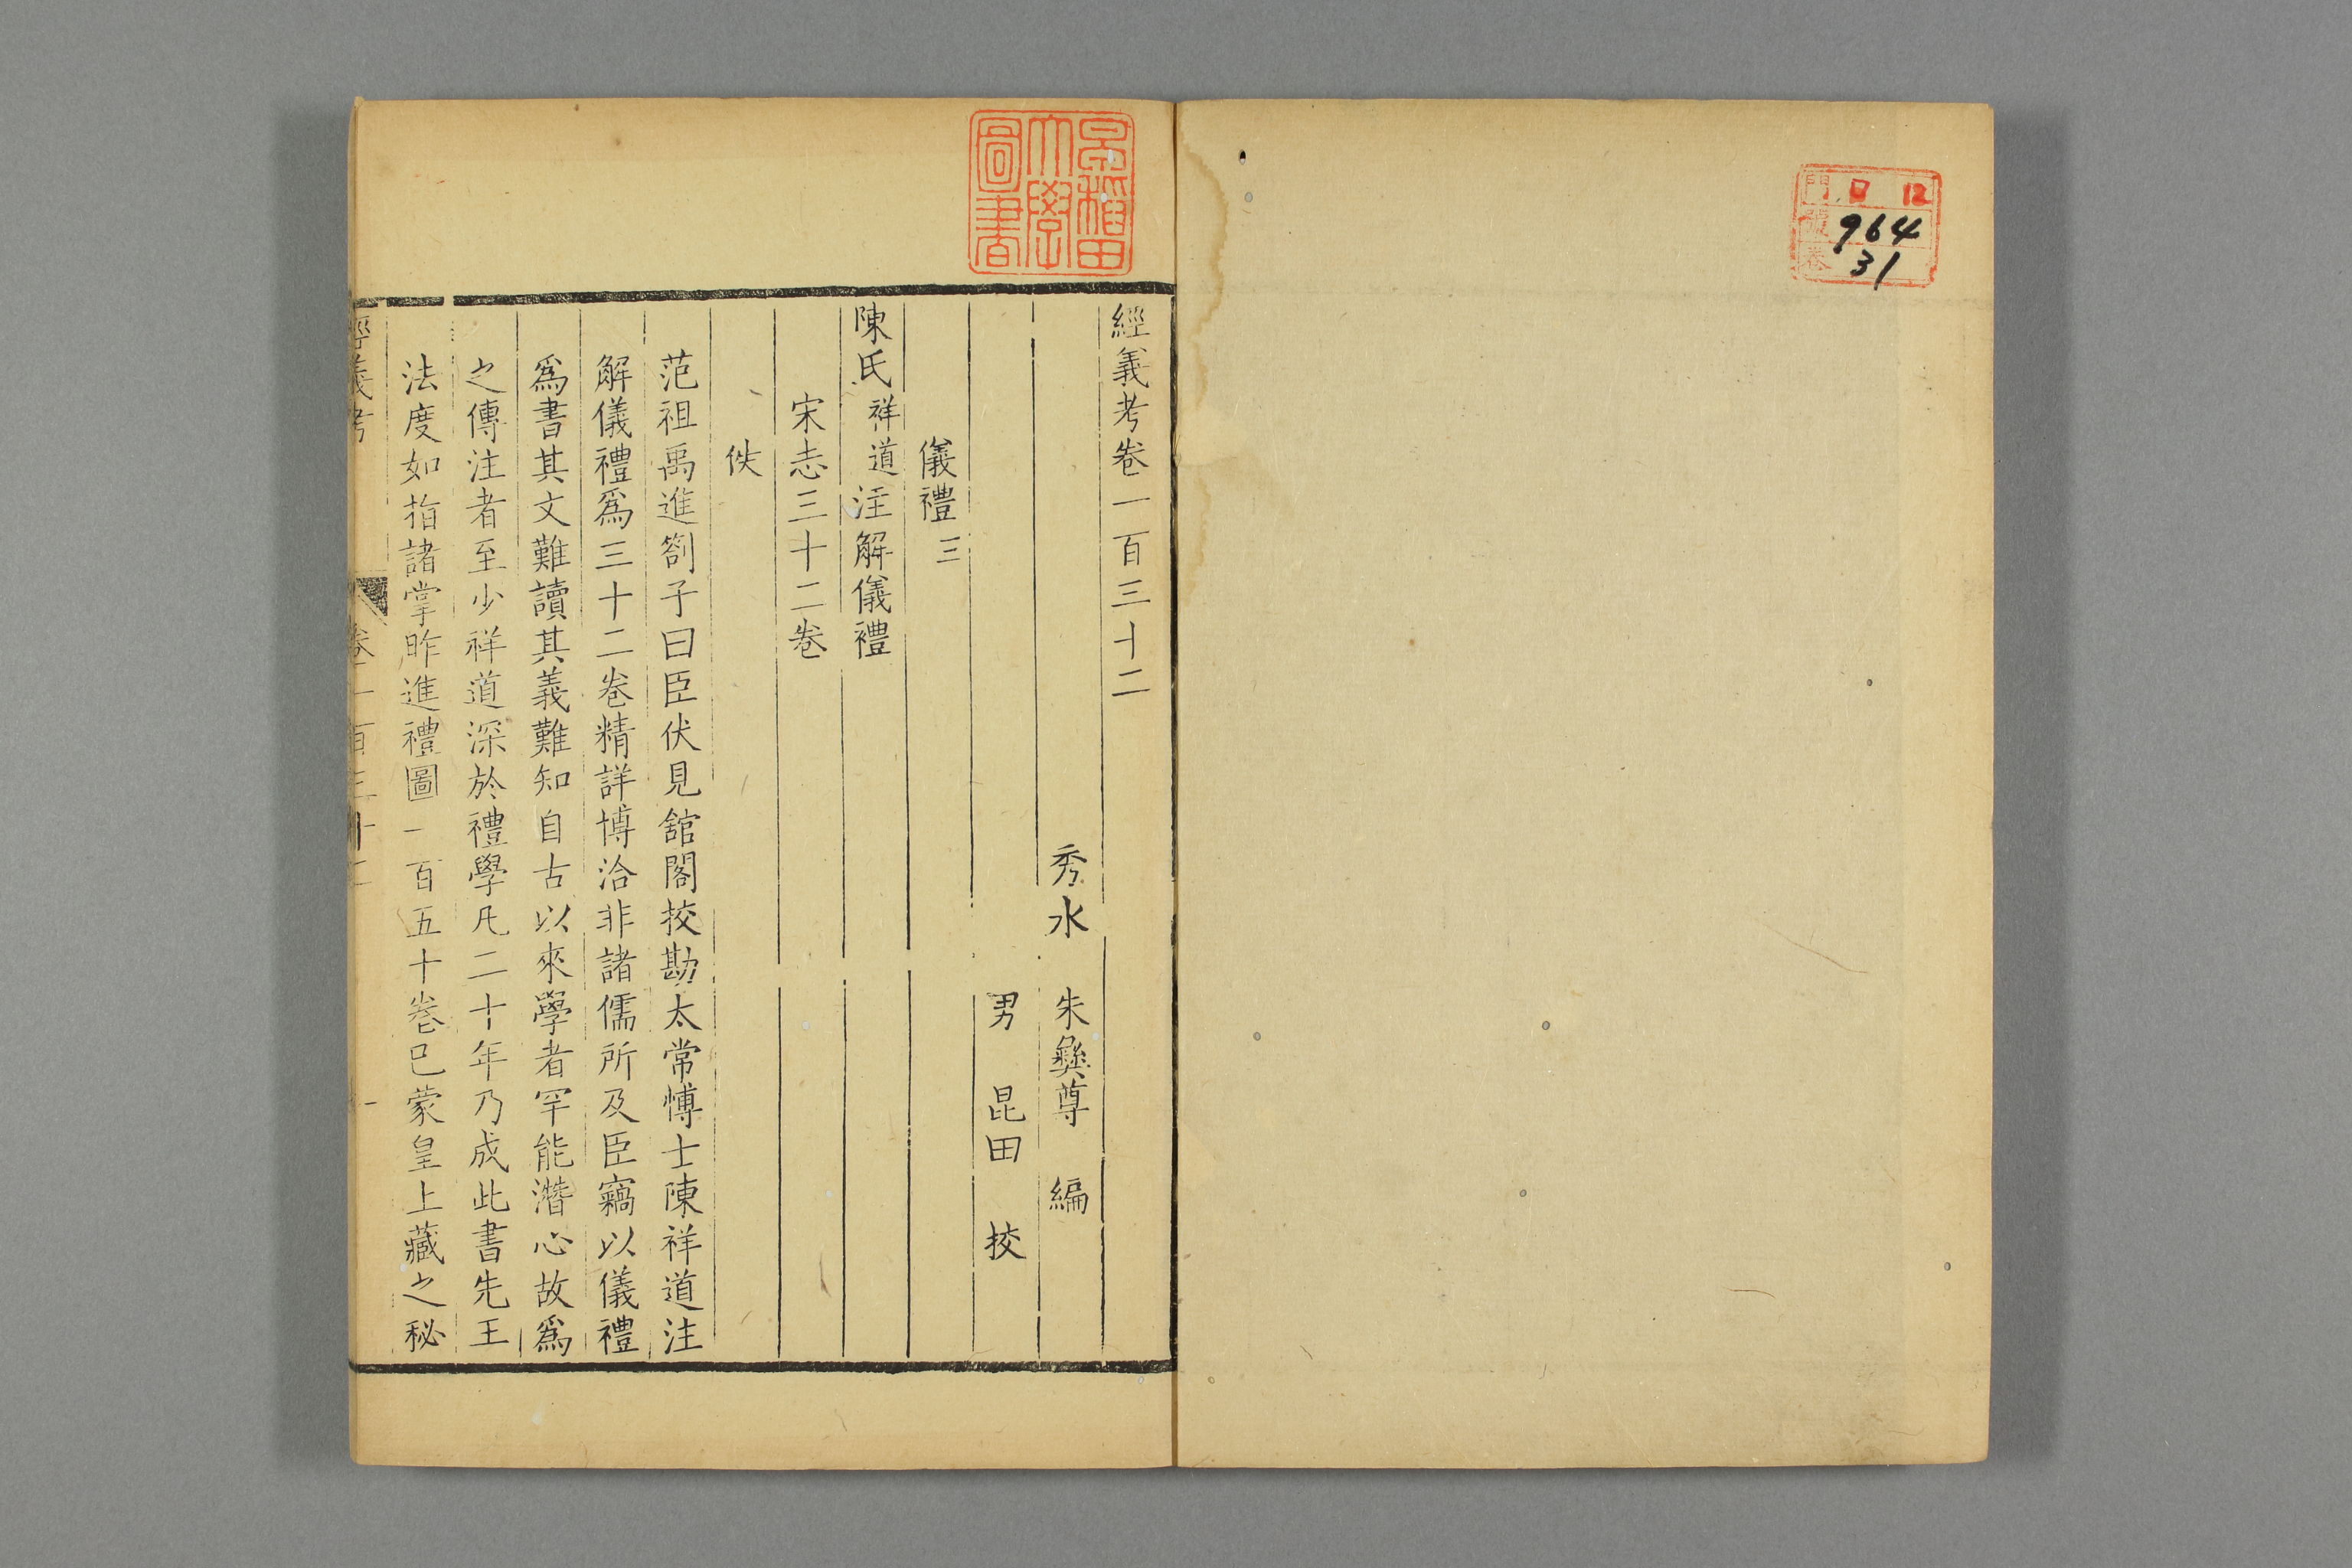 門 ロ 12
號 964
卷 31
早稲田
大學
圖書
經義考卷一百三十二
秀水 朱彝尊 編
男 昆田 挍
儀禮三
陳氏祥道注解儀禮
宋志三十二卷
佚
范祖禹進劄子曰臣伏見舘閣挍勘太常愽士陳祥道注
解儀禮爲三十二卷精詳博洽非諸儒所及臣竊以儀禮
爲書其文難讀其義難知自古以來學者罕能潛心故爲
之傳注者至少祥道深於禮學凡二十年乃成此書先王
法度如指諸掌昨進禮圖一百五十卷已蒙皇上藏之秘
經義考 卷一百三十二 一